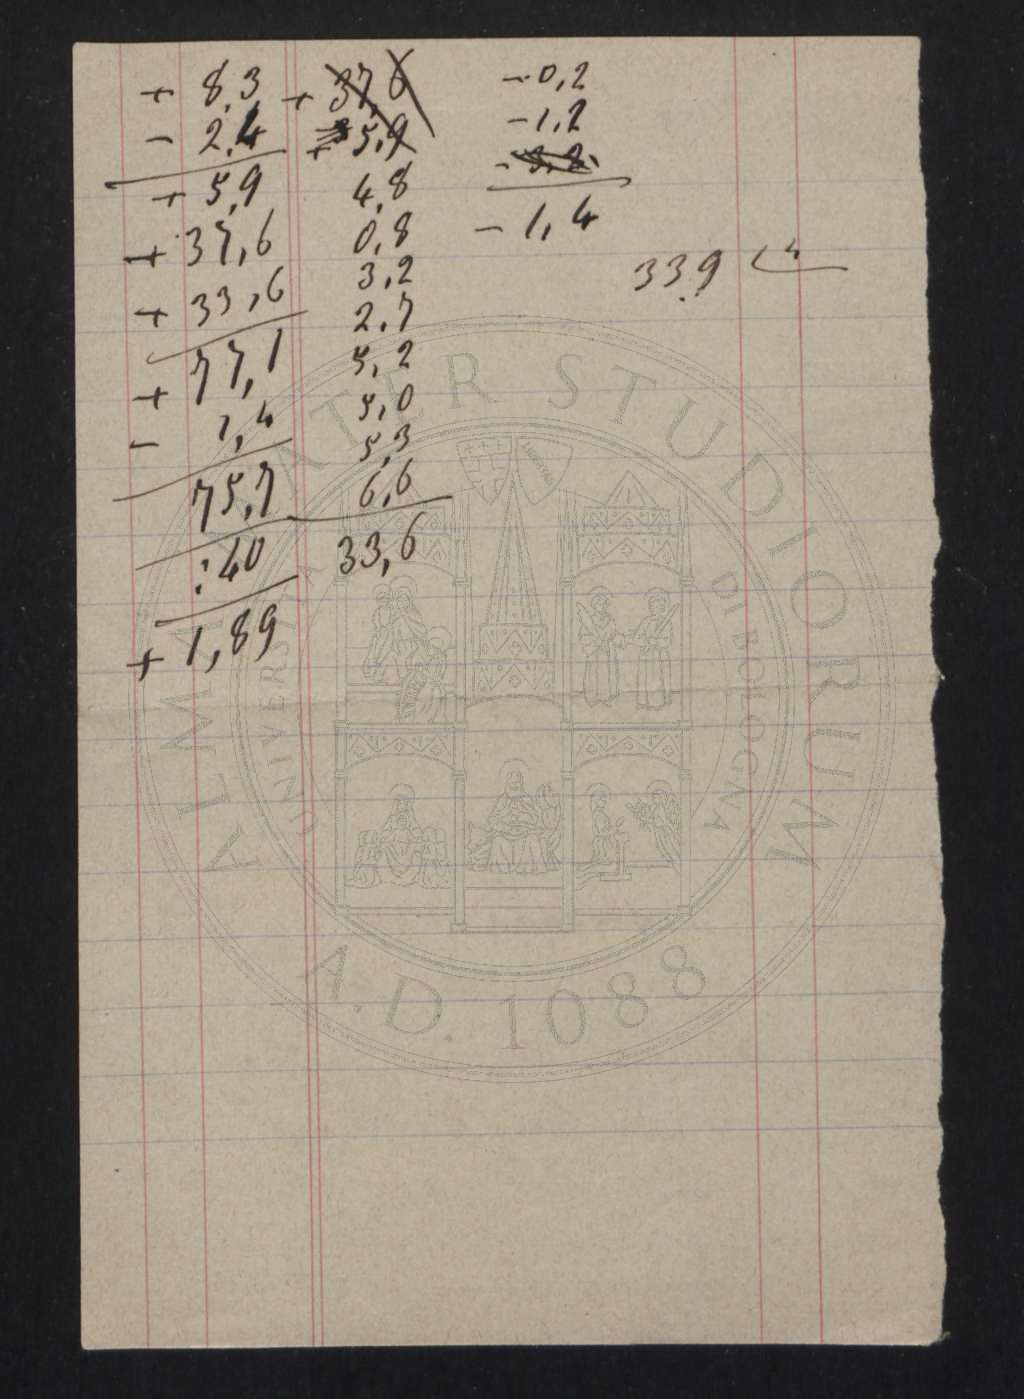 + 8,3
- 2,4
+ 5,9
+ 37,6
+ 33,6
+ 77,1
- 1,4
75,7
: 40
+ 1,89
+ 37,6
+ 5,9
4,8
0,8
3,2
2,7
5,2
5,0
5,3
6,6
33,6
- 0,2
- 1,2
- 1,4
33.9
ALMA MATER STUDIORUM
UNIVERSITÀ DI BOLOGNA
A.D. 1088